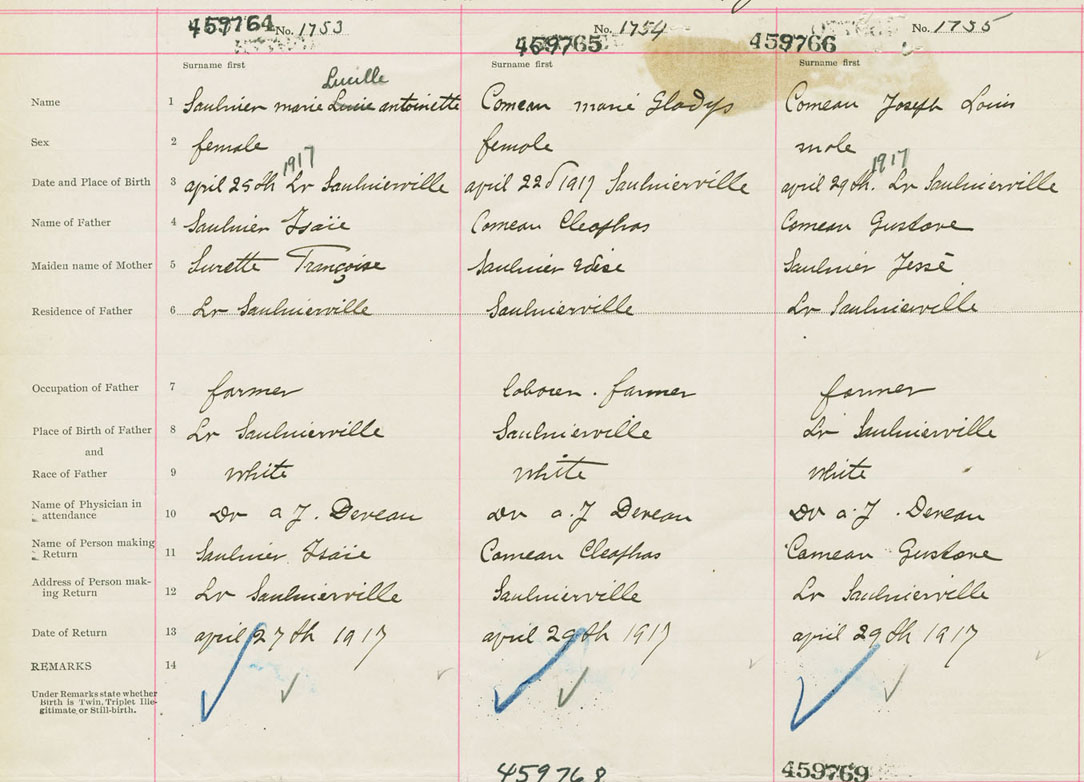 459764 No. 1753 459765 No. 1754 459766 No. 1755
Surname first Surname first Surname first
Lucille
Name 1 Saulnier marie Louis antoinette Comeau marie Gladys Comeau Joseph Louis
Sex 2 female female male
1917 1917
Date and Place of Birth 3 april 25th Lr Saulnierville april 22d 1917 Saulnierville april 29th. Lr Saulnierville
Name of Father 4 Saulnier Isaïe Comeau Cleophas Comeau Gustave
Maiden name of Mother 5 Surette Françoise Saulnier Edése Saulnier Jessé
Residence of Father 6 Lr Saulnierville Saulnierville Lr Saulnierville
Occupation of Father 7 farmer laborer. farmer farmer
Place of Birth of Father 8 Lr Saulnierville Saulnierville Lr Saulnierville
and
Race of Father 9 white white white
Name of Physician in
attendance 10 Dr a J. Deveau Dr a. J Deveau Dr a. J. Deveau
Name of Person making
Return 11 Saulnier Isaïe Comeau Cleophas Comeau Gustave
Address of Person mak-
ing Return 12 Lr Saulnierville Saulnierville Lr Saulnierville
Date of Return 13 april 27th 1917 april 29th 1917 april 29th 1917
REMARKS 14
Under Remarks state whether
Birth is Twin, Triplet Ille-
gitimate or Still-birth.
459768 459769